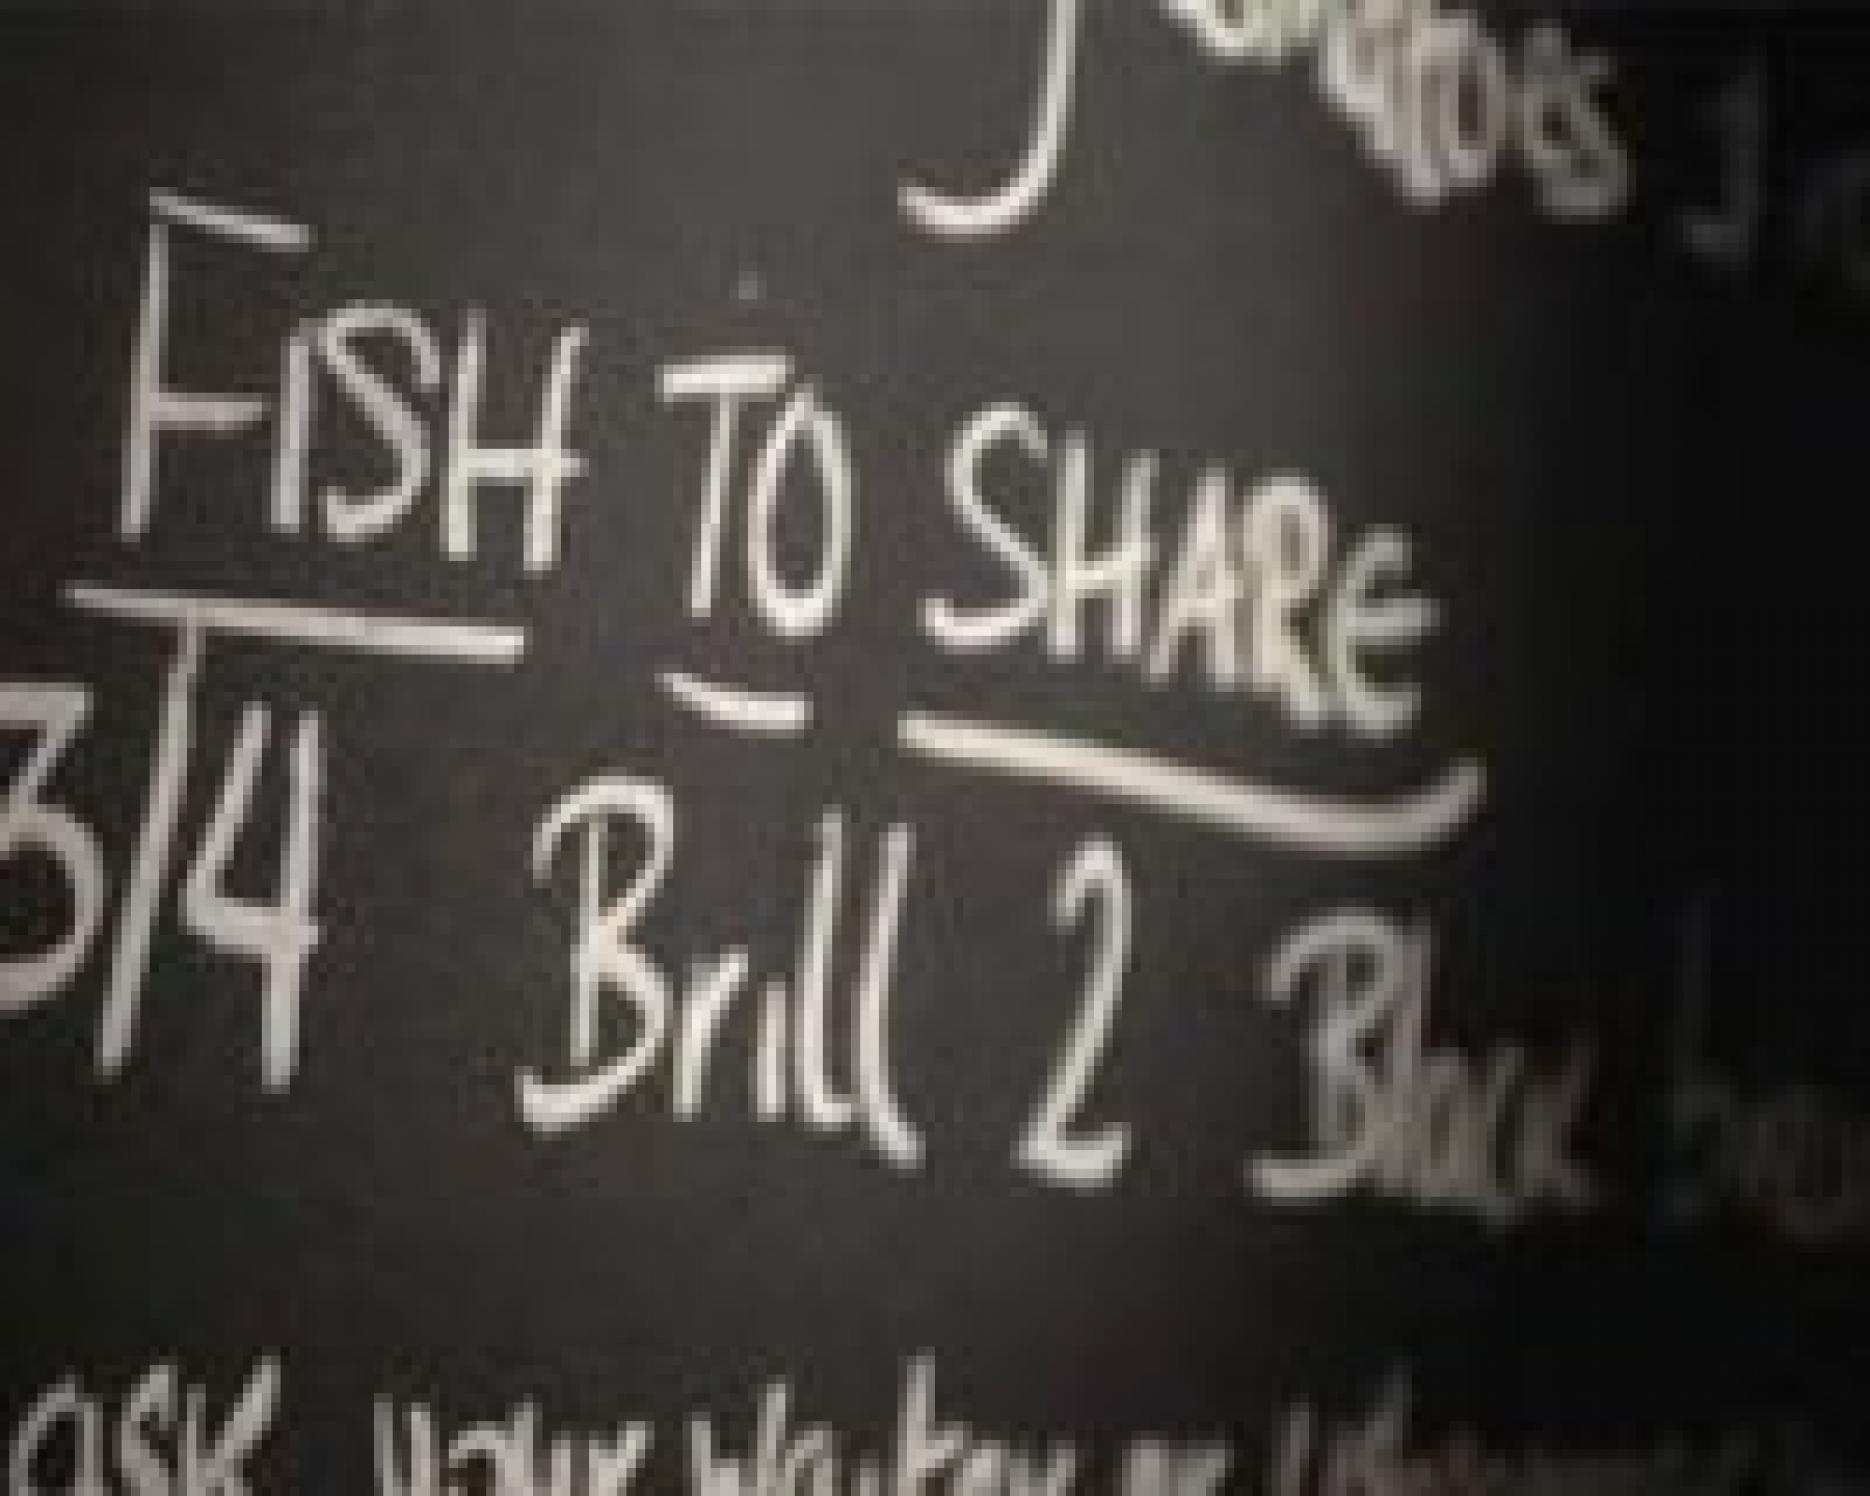 FISH TO SHARE
3/4 Brill 2 Black
ask your waiter or